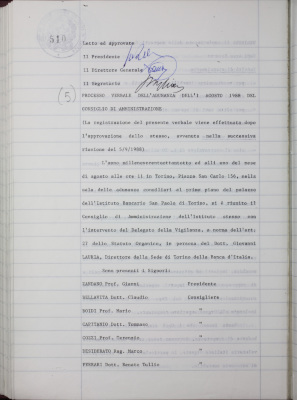 510
Letto ed approvato
Il Presidente
Il Direttore Generale
Il Segretario
(5)
PROCESSO VERBALE DELL'ADUNANZA DELL'1 AGOSTO 1988 DEL
CONSIGLIO DI AMMINISTRAZIONE
(La registrazione del presente verbale viene effettuata dopo
l'approvazione dello stesso, avvenuta nella successiva
riunione del 5/9/1988)
L'anno millenovecentottantotto ed alli uno del mese
di agosto alle ore 11 in Torino, Piazza San Carlo 156, nella
sala delle adunanze consiliari al primo piano del palazzo
dell'Istituto Bancario San Paolo di Torino, si è riunito il
Consiglio di Amministrazione dell'Istituto stesso con
l'intervento del Delegato della Vigilanza, a norma dell'art.
17 dello Statuto Organico, in persona del Dott. Giovanni
LAURIA, Direttore della Sede di Torino della Banca d'Italia.
Sono presenti i Signori:
ZANDANO Prof. Gianni Presidente
BELLAVITA Dott. Claudio Consigliere
BOIDI Prof. Mario "
GAETTANIO Dott. Tommaso "
COZZI Prof. Terenzio "
DESIDERATO Rag. Mario "
FERRARI Dott. Renato Tullio "